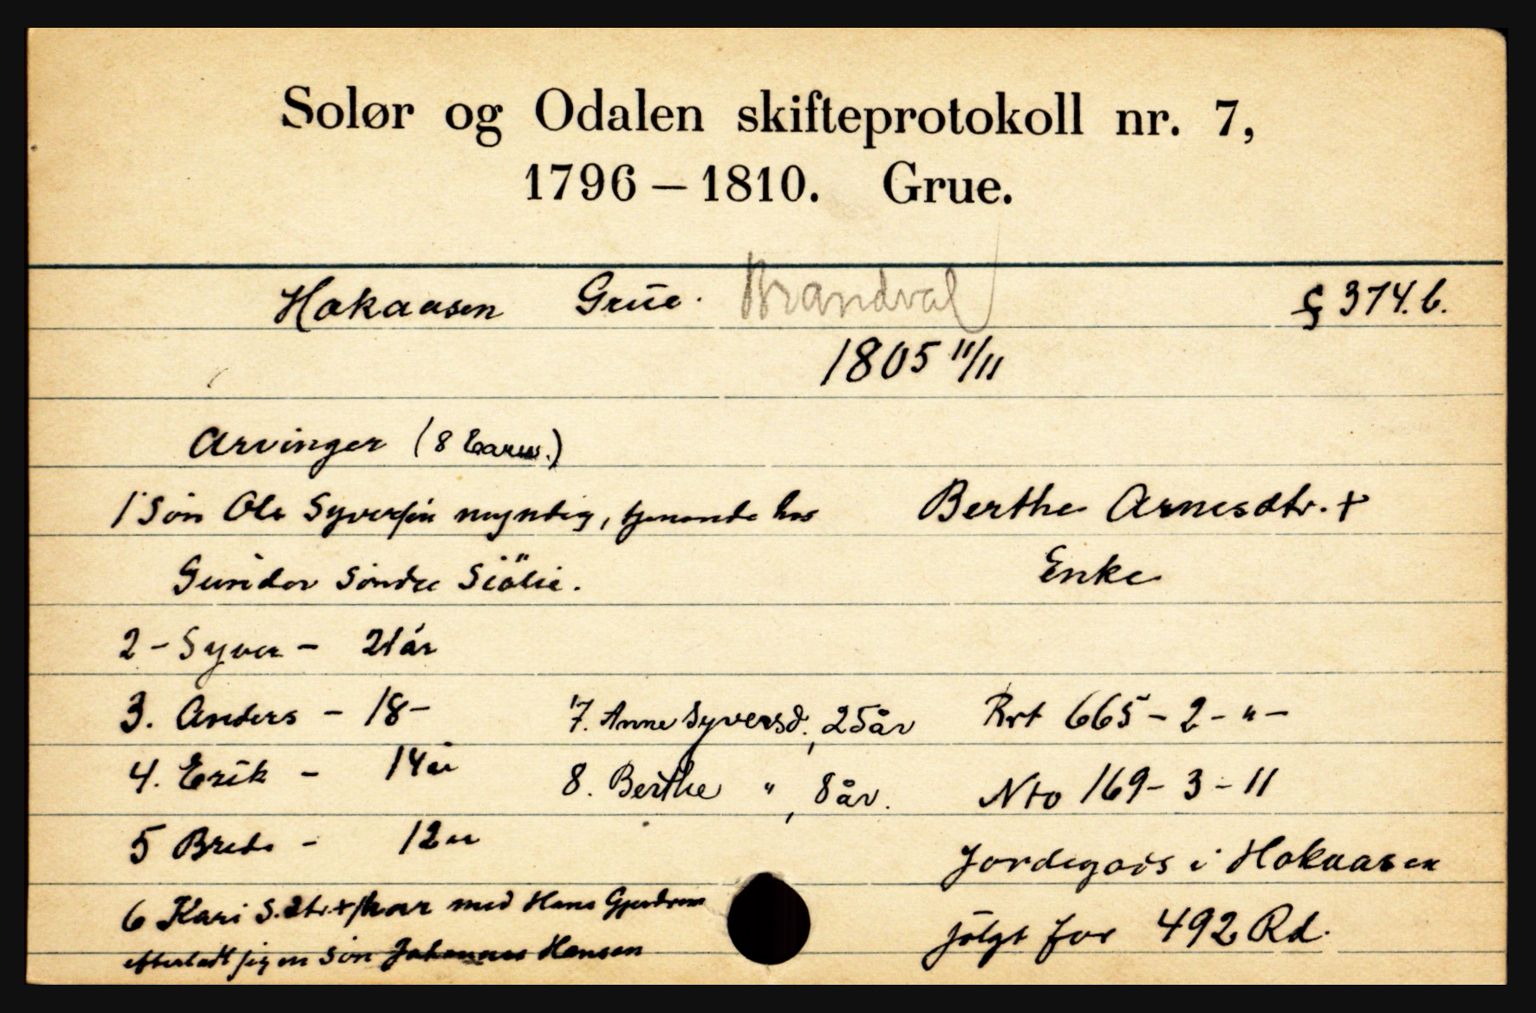 Solør og Odalen skifteprotokoll nr. 7,
1796 – 1810. Grue.
Hokaasen Grue. Brandval § 374.b.
1805 11/11
Arvinger (8 barn.)
1 Søn Ole Syversøn myndig, tjenende hos
Gunder Søndre Siölie.
Berthe Arnesdtr. +
Enke
2 - Syver - 21 år
3. Anders - 18 -
4. Erik - 14 år
5 Brede - 12 år
6 Kari S.dtr. + har med Hans
efterladt sig en søn Johannes Hansen
7. Anne Syversd., 25 år
8. Berthe " , 8 år.
Brt 665 - 2 - " -
Nto 169 - 3 - 11
Jordegods i Hokaasen
solgt for 492 Rd.